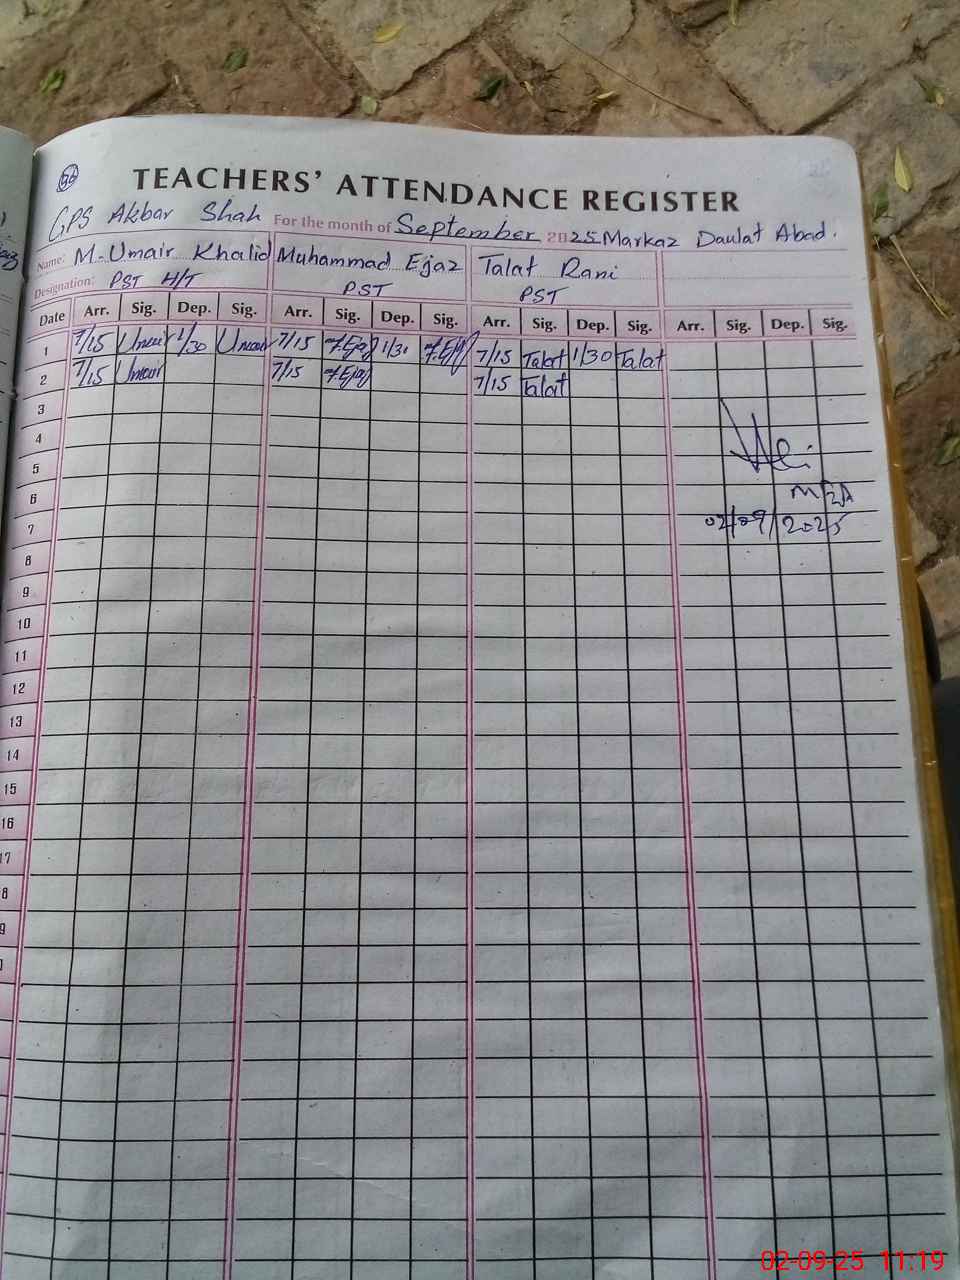 96
TEACHERS' ATTENDANCE REGISTER
GPS Akbar Shah For the month of September 2025 Markaz Daulat Abad.
Name: M-Umair Khalid Muhammad Ejaz Talat Rani
Designation: PST H/T PST PST
Date Arr. Sig. Dep. Sig. Arr. Sig. Dep. Sig. Arr. Sig. Dep. Sig. Arr. Sig. Dep. Sig.
1 7/15 Umair 1/30 Umair 7/15 M.Ejaz 1/30 M.Ejaz 7/15 Talat 1/30 Talat
2 7/15 Umair 7/15 M.Ejaz 7/15 Talat
3
4
5
6
7 02/09/2025
8
9
10
11
12
13
14
15
16
17
8
9
02-09-25 11:19